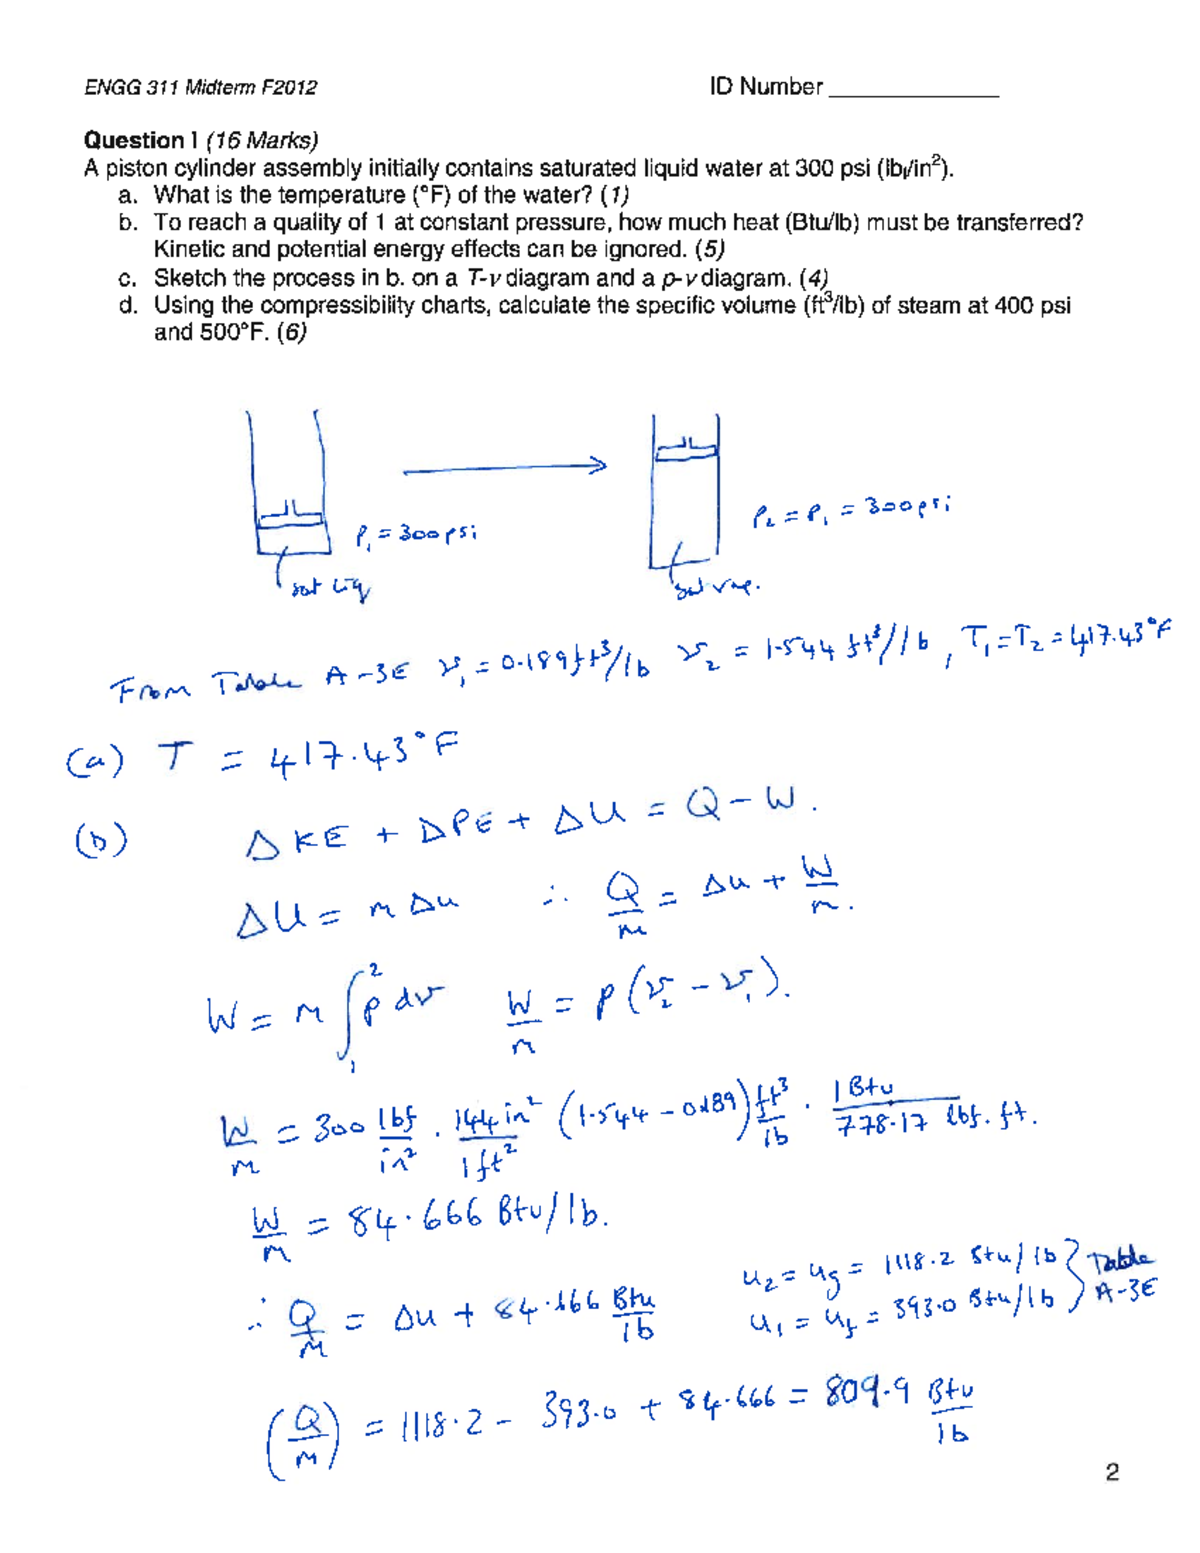 ENGG 311 Midterm F2012 ID Number ______________
Question 1 (16 Marks)
A piston cylinder assembly initially contains saturated liquid water at 300 psi (lbf/in²).
a. What is the temperature (°F) of the water? (1)
b. To reach a quality of 1 at constant pressure, how much heat (Btu/lb) must be transferred?
Kinetic and potential energy effects can be ignored. (5)
c. Sketch the process in b. on a T-v diagram and a p-v diagram. (4)
d. Using the compressibility charts, calculate the specific volume (ft³/lb) of steam at 400 psi
and 500°F. (6)
P₁ = 300 psi
P₂ = P₁ = 300 psi
sat liq
sat vap.
From Table A-3E v₁ = 0.189 ft³/lb v₂ = 1.544 ft³/lb, T₁ = T₂ = 417.43°F
(a) T = 417.43°F
(b) ΔKE + ΔPE + ΔU = Q - W.
ΔU = m Δu ∴ Q/m = Δu + W/m.
W = m ∫₁² p dv W/m = p (v₂ - v₁).
W/m = 300 lbf/in² · 144 in²/1 ft² (1.544 - 0.189) ft³/lb · 1 Btu/778.17 lbf. ft.
W/m = 84.666 Btu/lb.
u₂ = ug = 1118.2 Btu/lb } Table
u₁ = uf = 393.0 Btu/lb } A-3E
∴ Q/m = Δu + 84.666 Btu/lb
(Q/m) = 1118.2 - 393.0 + 84.666 = 809.9 Btu/lb
2